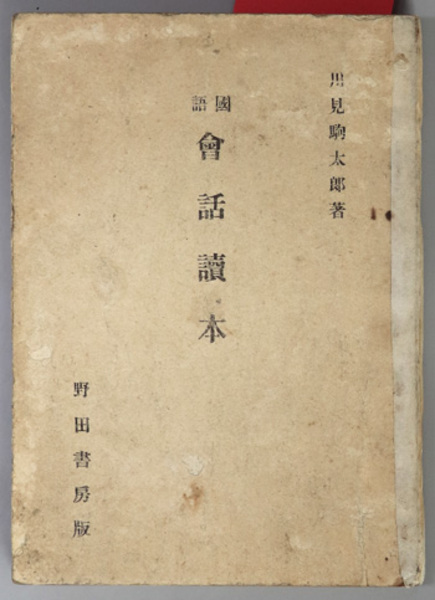 川見駒太郎著
國語
會話讀本
野田書房版